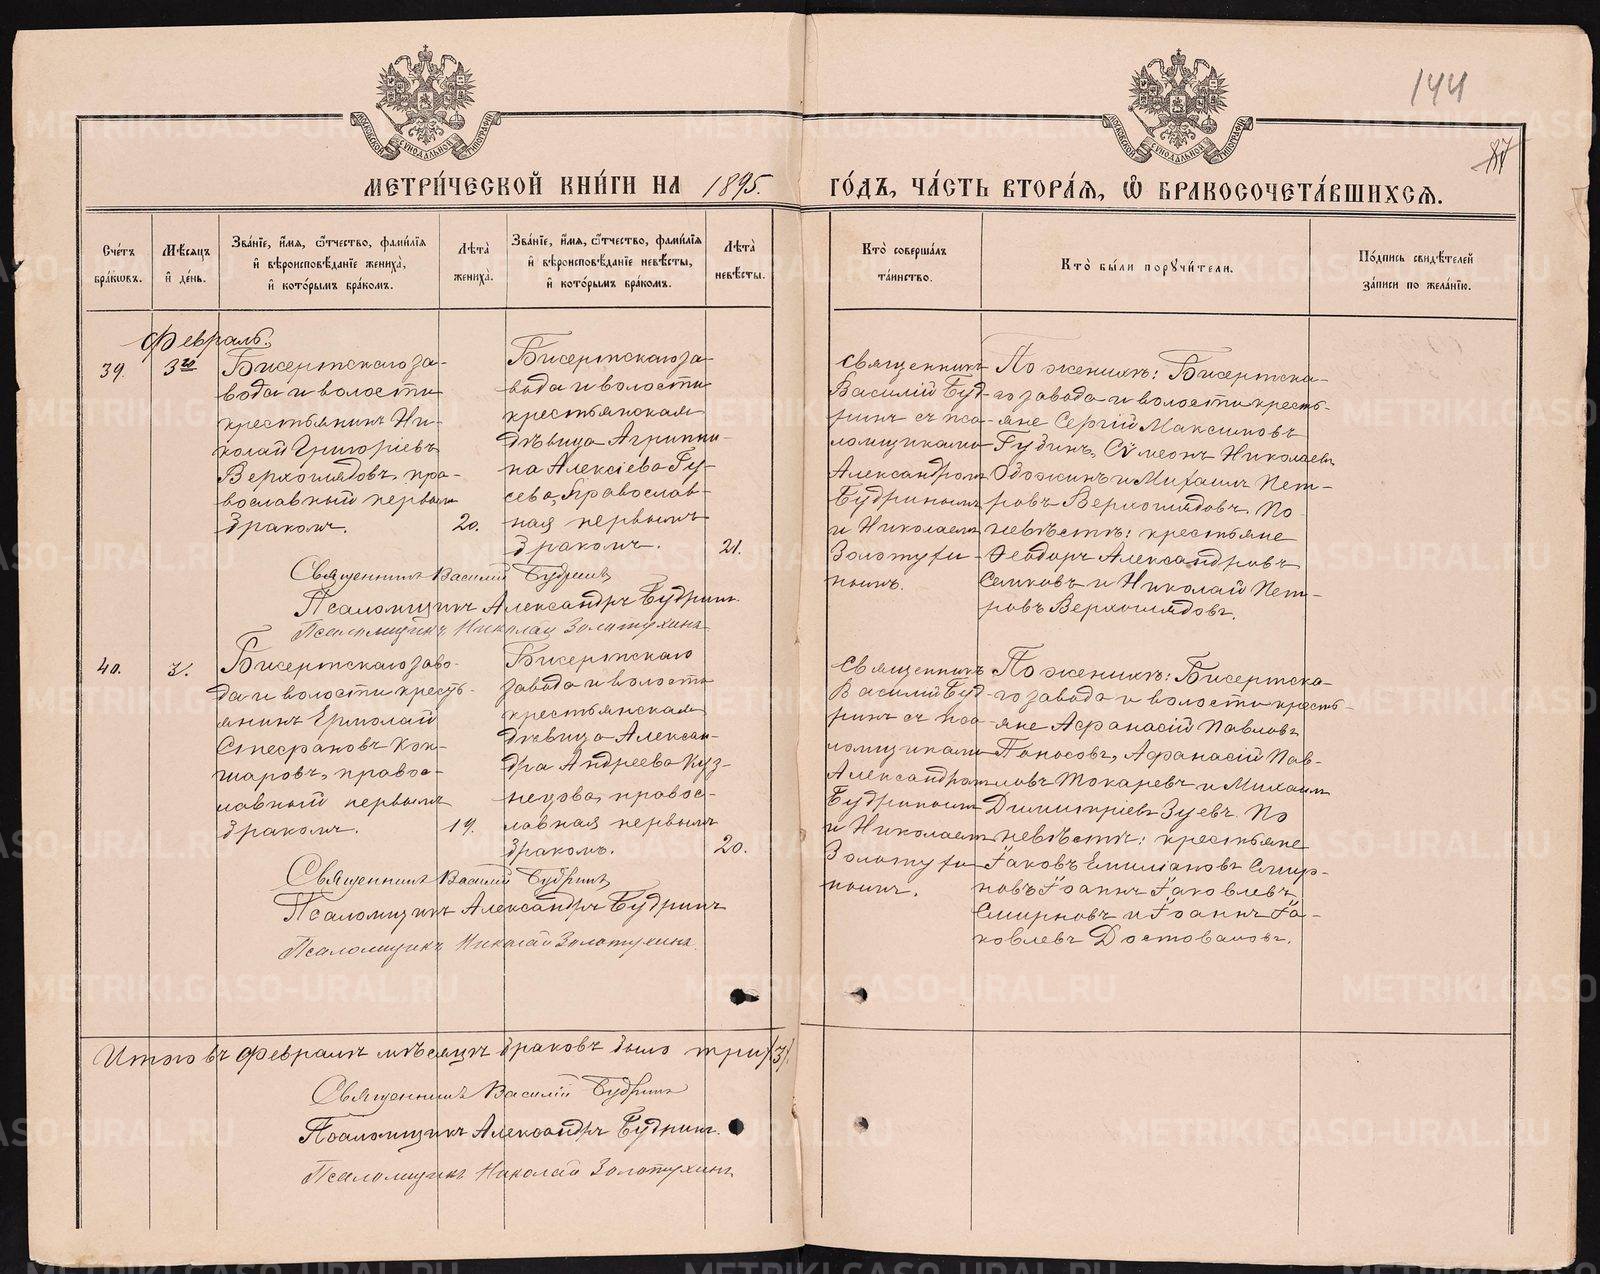 144
87
МЕТРИ́ЧЕСКОЙ КНИ́ГИ НА 1895. ГО́ДЪ, ЧА́СТЬ ВТОРА́Я, Ѡ БРАКОСОЧЕТА́ВШИХСЯ.
Сче́тъ бра́кѡвъ.
Мѣ́сяцъ и҆ де́нь.
Зва́нїе, и҆́мя, ѻ҆́тчество, фами́лїя и҆ вѣроисповѣ́данїе жениха̀, и҆ кото́рымъ бра́комъ.
Лѣ́та жениха̀.
Зва́нїе, и҆́мя, ѻ҆́тчество, фами́лїя и҆ вѣроисповѣ́данїе невѣ́сты, и҆ кото́рымъ бра́комъ.
Лѣ́та невѣ́сты.
Кто̀ соверша́лъ та́инство.
Кто̀ бы́ли порꙋчи́тели.
По́дпись свидѣ́телей за́писи по жела́нїю.
Февраль.
39.
3го
Бисертскаго за-
вода и волости
крестьянинъ Ни-
колай Григоріевъ
Верхоглядовъ, пра-
вославный первым
бракомъ.
20.
Бисертскаго за-
вода и волости
крестьянская
дѣвица Агриппи-
на Алексіева Гу-
сева, Православ-
ная первымъ
бракомъ.
21.
Священникъ
Василій Буд-
ринъ съ пса-
ломщиками
Александром
Будринымъ
и Николаем
Золотухи-
нымъ.
По женихѣ: Бисертска-
го завода и волости кресть-
яне Сергій Максимовъ
Гудинъ, Сѷмеонъ Николаевъ
Одожинъ и Михаилъ Пет-
ровъ Верхоглядовъ. По
невѣстѣ: крестьяне
Ѳеодоръ Александровъ
Семковъ и Николай Пет-
ровъ Верхоглядовъ.
Священникъ Василій Будринъ
Псаломщикъ Александръ Будринъ.
Псаломщикъ Николай Золотухинъ
40.
3.
Бисертскаго заво-
да и волости кресть-
янинъ Ермолай
Стефановъ Кок-
шаровъ, правос-
лавный первымъ
бракомъ.
19.
Бисертскаго
завода и волости
крестьянская
дѣвица Алексан-
дра Андреева Куз-
нецова, правос-
лавная первымъ
бракомъ.
20.
Священникъ
Василій Буд-
ринъ съ пса-
ломщиками
Александром
Будринымъ
и Николаем
Золотухи-
нымъ.
По женихѣ: Бисертска-
го завода и волости кресть-
яне Афанасій Павловъ
Поносовъ, Афанасій Пав-
ловъ Токаревъ и Михаилъ
Димитріевъ Зуевъ. По
невѣстѣ: крестьяне
Іаковъ Емиліановъ Смир-
новъ Іоаннъ Іаковлевъ
Смирновъ и Іоаннъ Іа-
ковлевъ Достоваловъ.
Священникъ Василій Будринъ
Псаломщикъ Александръ Будринъ
Псаломщикъ Николай Золотухинъ.
Итого въ Февралѣ мѣсяцѣ браковъ было три (3).
Священникъ Василій Будринъ
Псаломщикъ Александръ Будринъ.
Псаломщикъ Николай Золотухинъ
METRIKI.GASO-URAL.RU